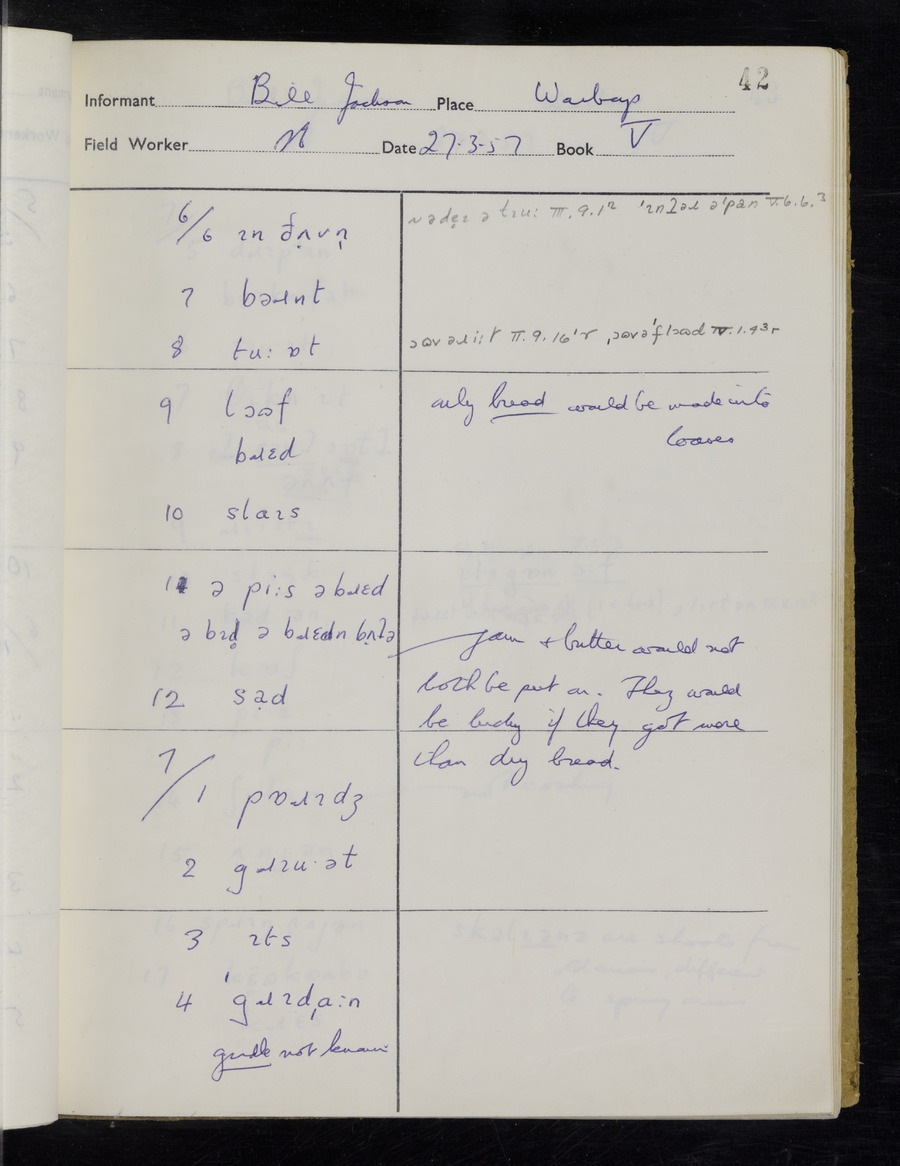 42
Informant Bill Jackson Place Warboys
Field Worker Date 27.3.57 Book V
6/6 ɪn ðɪ ʌvn̩
7 bəɹnt
8 tu: ɒt
9 lɔəf
bɹɛd
10 slaɪs
11 ə pi:s ə bɹɛd
ə bɪd̥ ə bɹɛdn bʌʔə
12 sa̧d
7/1 pɒɹɪdʒ
2 gɹɪu·ət
3 ɪts
4 ˈgɹɪd̩a:n
girdle not known
ə tɪu: III.9.1 əˈpan V.6.6.3
II.9.16 IV.1.43
only bread would be made into
loaves
jam + butter would not
both be put on. They would
be lucky if they got more
than dry bread.